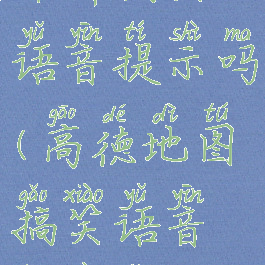 yǔ yīn tí shì ma
语音提示吗
gāo dé dì tú
(高德地图
gǎo xiào yǔ yīn
搞笑语音